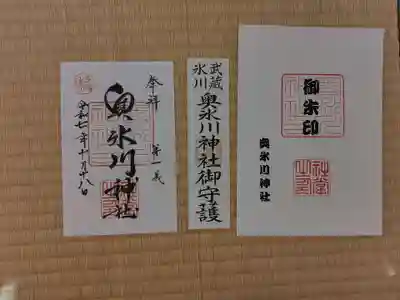 奉拝
第一義
奥氷川神社
令和七年十月十八日
武蔵
氷川
奥氷川神社御守護
御朱印
奥氷川神社